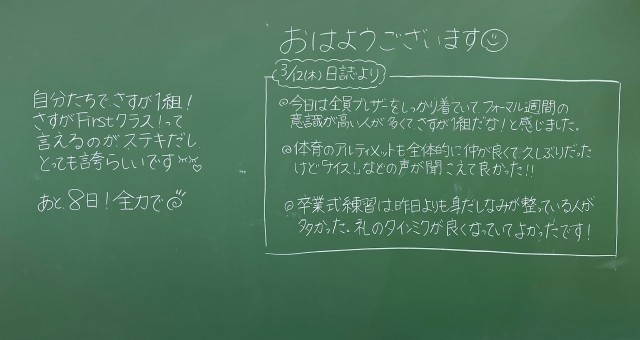 おはようございます
3/12(木)日誌より
@今日は全員ブレザーをしっかり着ていてフォーマル週間の
意識が高い人が多くてさすが1組だな!と感じました。
@体育のアルティメットも全体的に仲が良くて久しぶりだった
けど「ナイス!」などの声が聞こえて良かった!!
@卒業式練習は昨日よりも身だしなみが整っている人が
多かった。礼のタイミングが良くなっていてよかったです!
自分たちで、さすが1組!
さすがFirstクラス!って
言えるのがステキだし
とっても誇らしいです
あと、8日!全力で